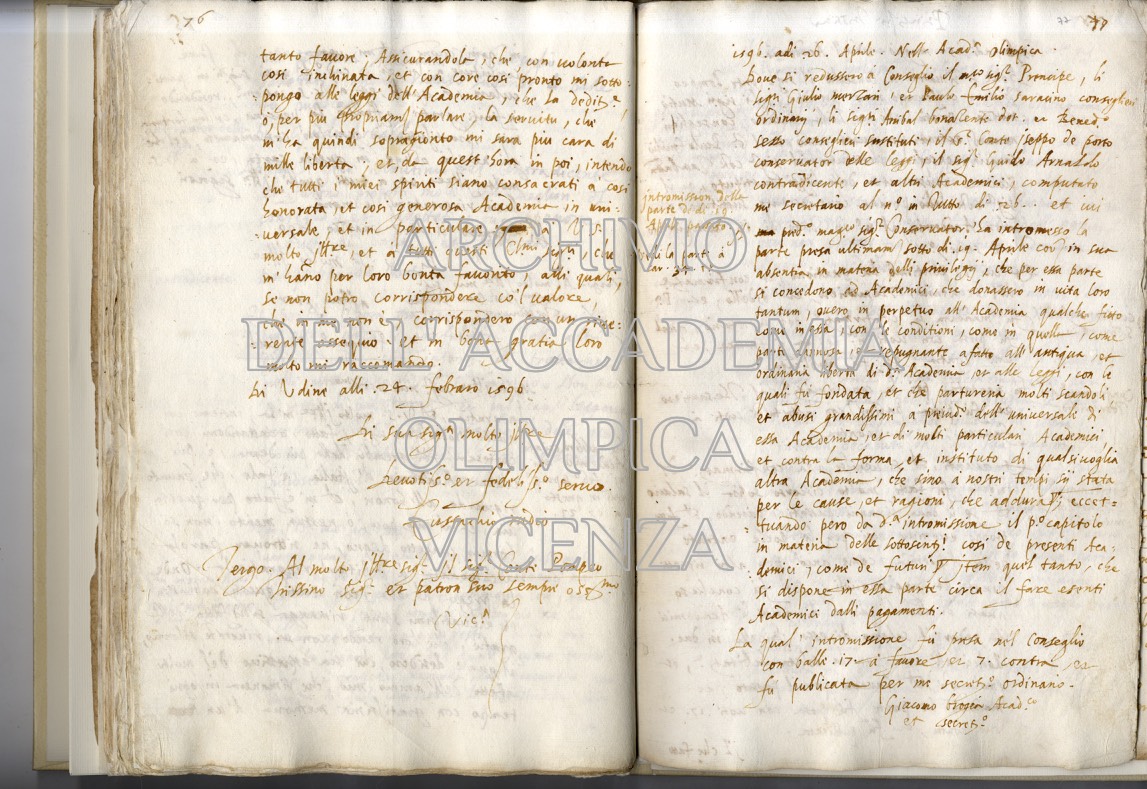 76
tanto favore, Assicurandola, che con uolonta
cosi inchinata, et con core cosi pronto mi sotto
pongo alle leggi dell'Academia, che la dedit.ᵉ
ò, per più propriam.ᵗᵉ parlare, la seruitù, che
m'ha quindi sopragionto mi sarà più cara di
mille libertà, et da quest'hora in poi, intendo
che tutti i miei spiriti siano consacrati a cosi
honorata, et cosi generosa Academia in uni-
uersale, et in particulare
molto Ill.ʳᵉ, et a tutti questi Cl.ᵐⁱ sig.ʳⁱ, che
m'hano per loro bontà fauorito, alli quali,
se non potrò corrispondere co'l ualore,
che in me non è, corrisponderò con un riue-
rente ossequio. et in bona gratia loro
molto mi raccomando.
Di Udine alli .24. febraro 1596
Di sua sig.ʳⁱᵃ molto Ill.ʳᵉ
Deuotiss.ᵒ et fedeliss.ᵒ seruo.
Eustachio Rudeo
Tergo. Al molto Ill.ʳᵉ sig.ʳ il sig.ʳ Conte Pompeo
Trissino sig.ʳ et patron suo sempre oss.ᵐᵒ
Vic.ᵃ
77
1596. adi 26. Aprile. Nella Acad.ᵃ Olimpica.
Doue si redussero à Conseglio il mᶜᵒ sig.ʳ Principe, li
sig.ʳⁱ Giulio merzari, et Paulo Emilio Saraeino conseglieri
ordinarij, li sig.ʳⁱ Anibal bonaLente dot. et Bened.ᵒ
Sesso conseglieri sustituti, il s.ʳ Conte Iseppo de porto
conseruator delle leggi, il sig.ʳ Guido Arnaldo
contradicente, et altri Academici, computato
me secretario al n.ᵒ in tutto di 26. et iui
intromission della
parte di di 19
Aprile
ma pred.ᵒ mag.ᶜᵒ sig.ʳ Conseruator. ha intromesso la
parte presa ultimam.ᵗᵉ sotto di 19. Aprile cor.ᵗᵉ in sua
absentia in materia delli priuilegij, che per essa parte
si concedono ad Academici che donassero in uita loro
tantum, ouero in perpetuo all'Academia qualche fitto
come in essa, con le conditioni, come in quella, come
parte dannosa, et repugnante afatto all'antiqua, et
ordinaria libertà di d.ᵃ Academia, et alle leggi, con le
quali fù fondata, et che partureria molti scandoli,
et abusi grandissimi a preiud.ᵒ dell'uniuersale di
essa Academia, et di molti particulari Academici
et contra la forma, et instituto di qualsiuoglia
altra Academia, che sino a nostri tempi sij stata
per le cause, et ragioni, che addurà, eccet-
tuando però da d.ᵃ intromissione il p.ᵒ capitolo
in materia delle sottoscritt.ⁱ cosi de presenti Aca-
demici, come de futuri. Item quel tanto, che
si dispone in essa parte circa il fare esenti
Academici dalli pagamenti.
La qual'intromissione fù presa nel Conseglio
con balle .17. à fauore, et 7. contra, et
fù publicata per me secret.ᵒ ordinario.
Giacomo bregia Acad.ᶜᵒ
et secret.ᵒ
ARCHIVIO
DELL'ACCADEMIA
OLIMPICA
VICENZA